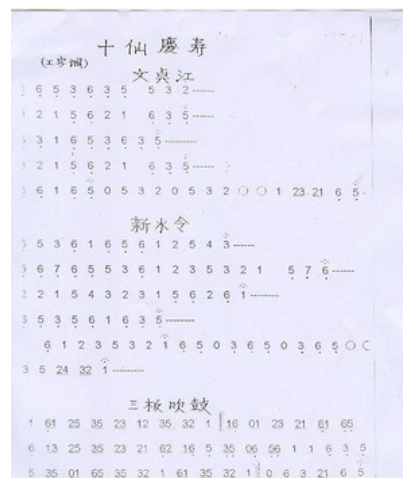 十仙慶寿
(工字調)
文奌江
6 5 3 6 3 5 5 3 2------
2 1 5 6 2 1 6 3 5------
3 1 6 5 3 6 3 5------
2 1 5 6 2 1 6 3 5------
6 1 6 5 0 5 3 2 0 5 3 2 〇 〇 1 23 21 6 5-
新水令
5 5 3 6 1 6 5 6 1 2 5 4 3------
5 6 7 6 5 5 3 6 1 2 3 5 3 2 1 5 7 6------
2 2 1 5 4 3 2 3 1 5 6 2 6 1--------
5 5 3 5 6 1 6 3 5------
6 1 2 3 5 3 2 1 6 5 0 3 6 5 0 3 6 5 〇
3 5 24 32 1---------
三板吹鼓
1 61 25 35 23 12 35 32 1 16 01 23 21 61 65
6 13 25 35 23 21 62 16 5 35 06 56 1 1 6 3 5
5 35 01 65 35 32 1 61 35 32 1 0 6 3 21 6 5